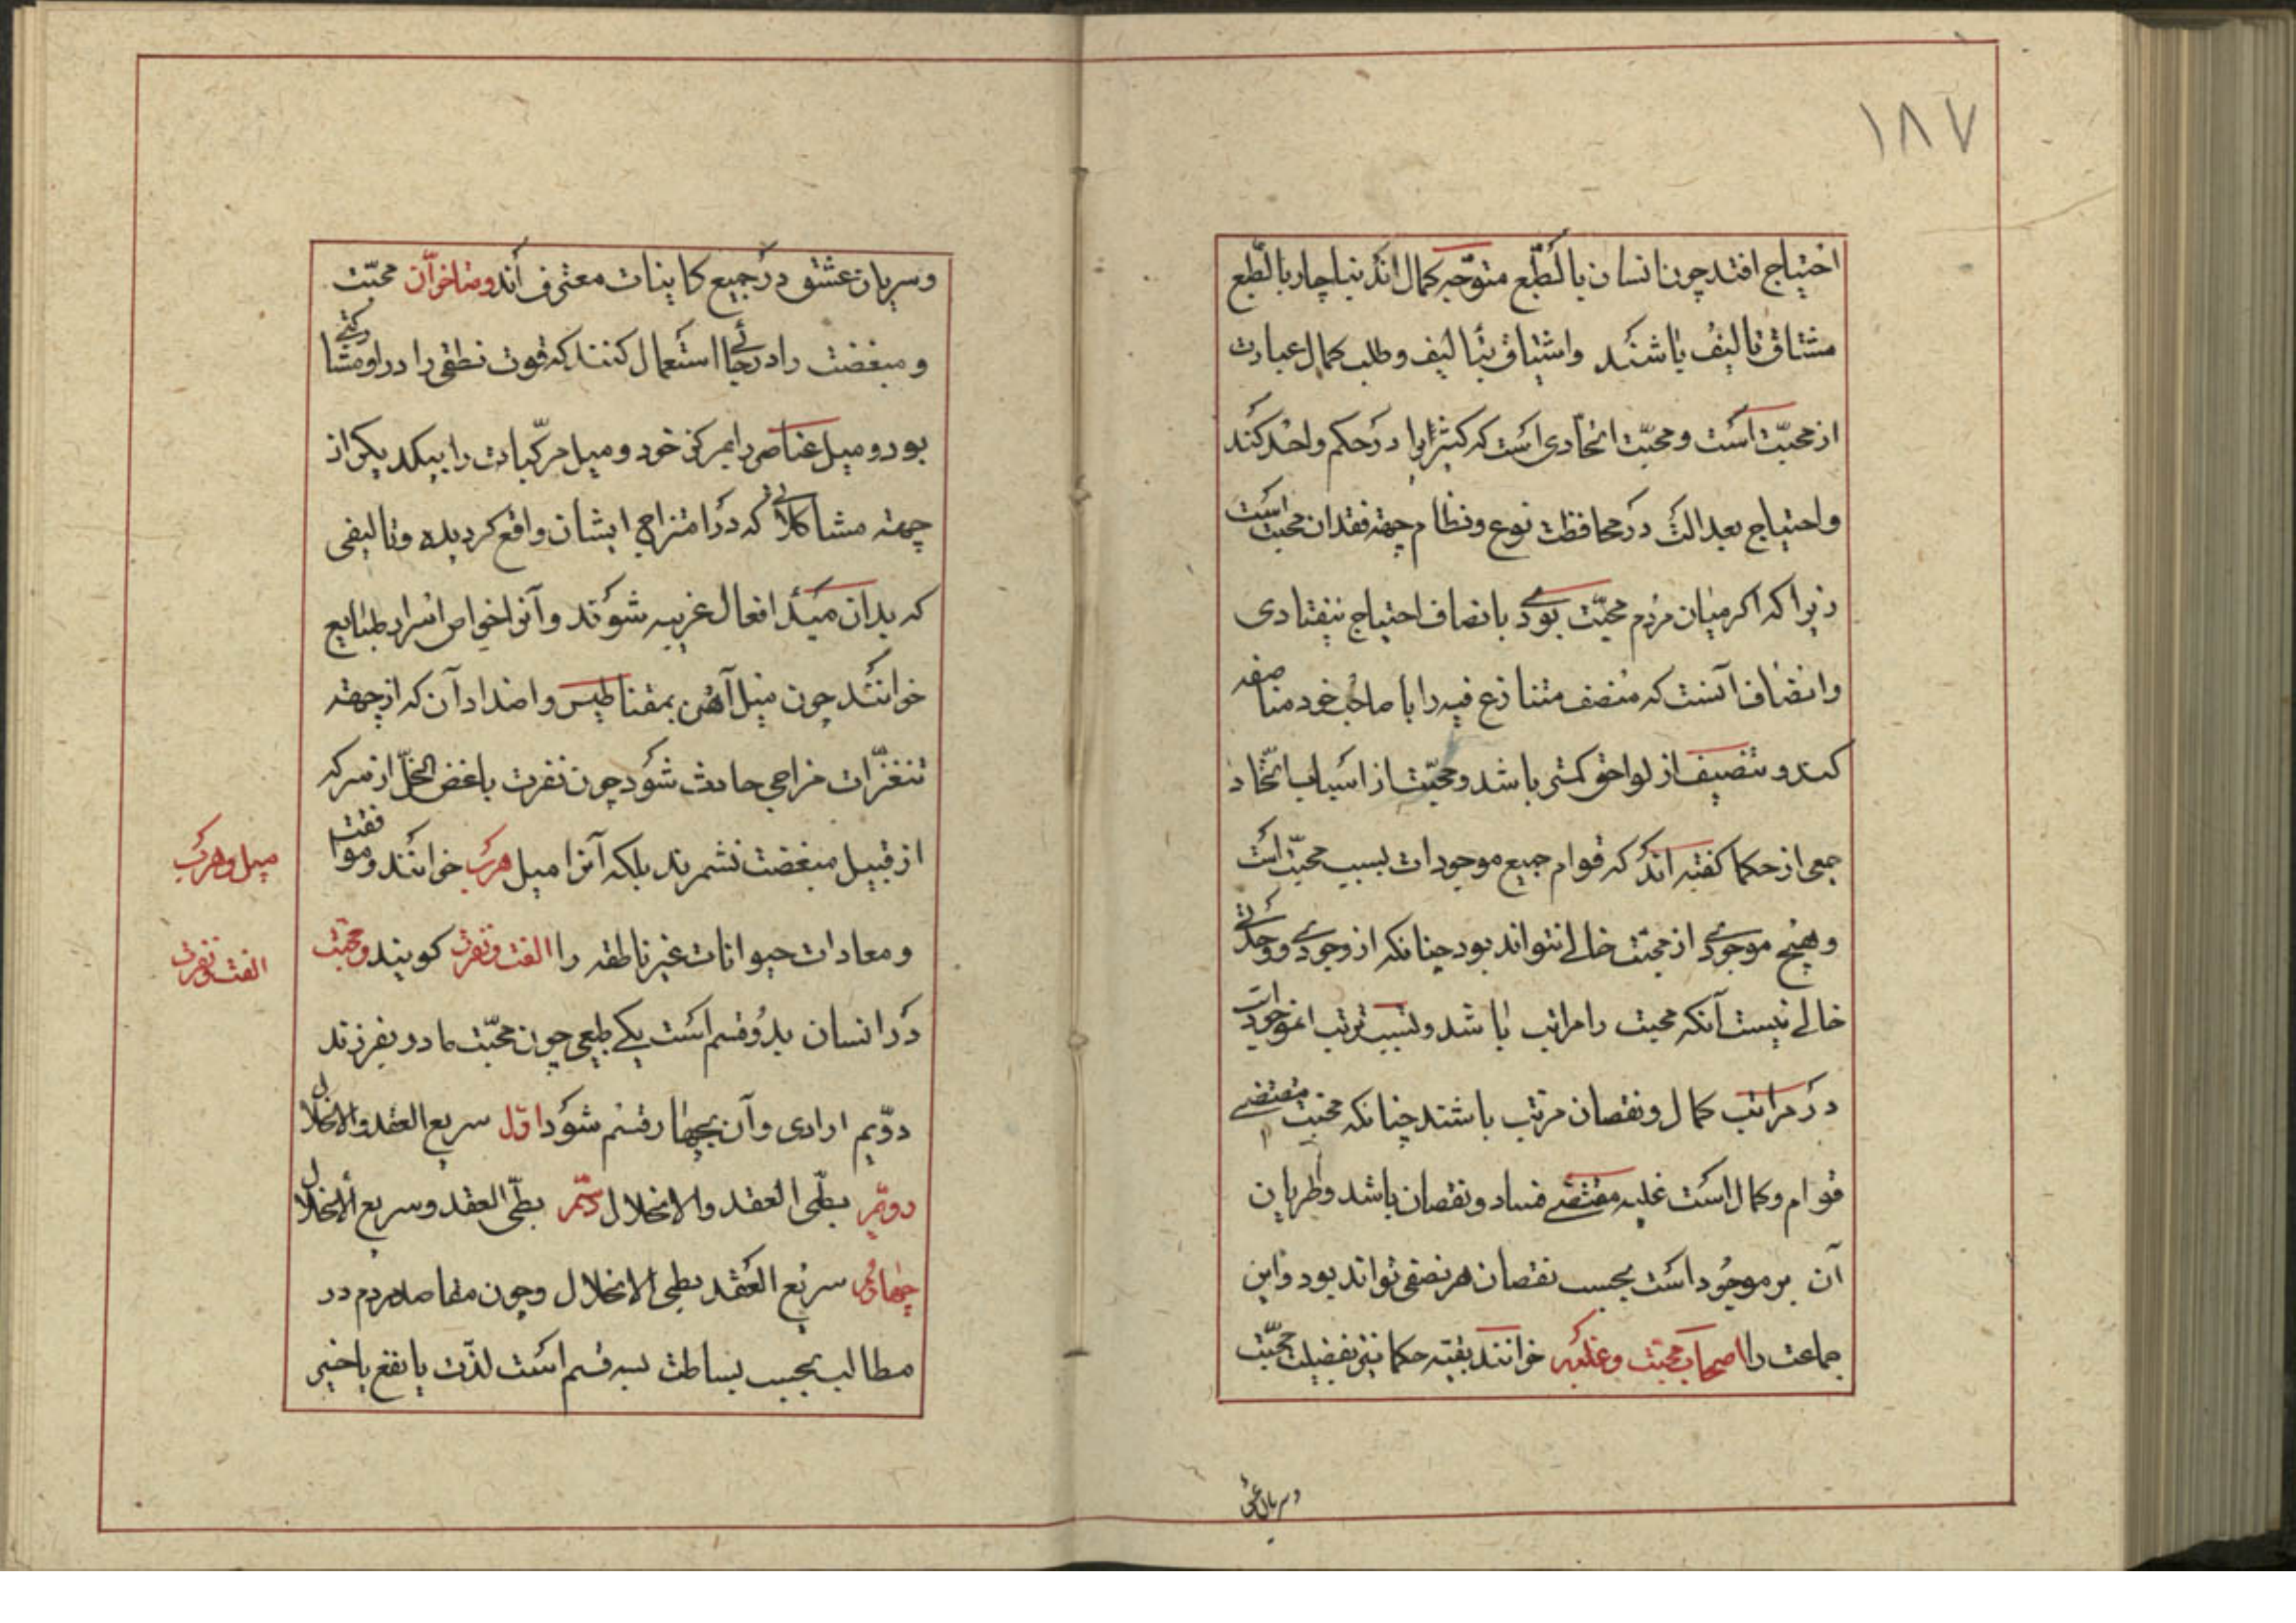 ۱۸۷
احتیاج افتد چون انسان بالطبع متوجه کمال اند بناچار بالطبع
مشتاق تالیف باشند واشتیاق بتألیف وطلب کمال عبارت
از محبّت است ومحبّت اتحادی است که کثیر را در حکم واحد کند
واحتیاج بعدالت در محافظت نوع ونظام جهته فقدان محبت است
زیرا که اکر میان مردم محبّت بودی بانصاف احتیاج نیفتادی
وانصاف آنست که منصف متنازع فیه را با صاحب خود مناصفه
کند و تنصیف از لواحق کمتی باشد ومحبّت از اسباب اتّحاد
جمعی از حکما کفته اند که قوام جمیع موجودات بسبب محبّت است
وهیچ موجودی از محبّت خالی نتواند بود چنانکه از وجودی و وحدتی
خالی نیست آنکه محبت را مراتب باشد وبسبب ترتب موجودات
در مراتب کمال ونقصان مرتب باشند چنانکه محبت مقتضی
قوام وکمال است غلبه مقتضی فساد ونقصان باشد وطریان
آن بر موجود است بحسب نقصان هر نصفی تواند بود واین
جماعت را اصحاب محبّت وغلبه خوانند بقیّه حکما بتفضیل محبّت
وسریان عشق
وسریان عشق در جمیع کاینات معترف اند ومتاخرّان محبّت
ومبغضت را در جائی استعمال کنند که قوت نطقی را در او مشارکتی
بود ومیل عناصر را بمرکز خود ومیل مرکّبات را بیکدیکر از
جهته مشاکلاتی که در امتزاج ایشان واقع کردیده وتالیفی
که بدان مبدأ افعال غریبه شوند وآنرا خواص اسرار طبایع
خوانند چون میل آهن بمقناطیس واضداد آن که از جهته
تنغّرات مزاجی حادث شود چون نفرت باغض الخلّ از سرکه
از قبیل مبغضت نشمرند بلکه آنرا میل هرب خوانند وموافقت
ومعادات حیوانات غیر ناطقه را الفت ونفرت کویند ومحبّت
در انسان بدو قسم است یکی طبعی چون محبّت مادر بفرزند
دوّیم ارادی وآن بچهار قسم شود اوّل سریع العقد والانحلال
دویّم بطّی العقد والانحلال سیّم بطّی العقد وسریع الانحلال
چهارم سریع العقد بطی الانحلال وچون مقاصد مردم در
مطالب بحسب بساطت بسه قسم است لذّت یا نفع یا خیر
میل وهرب
الفت ونفرت